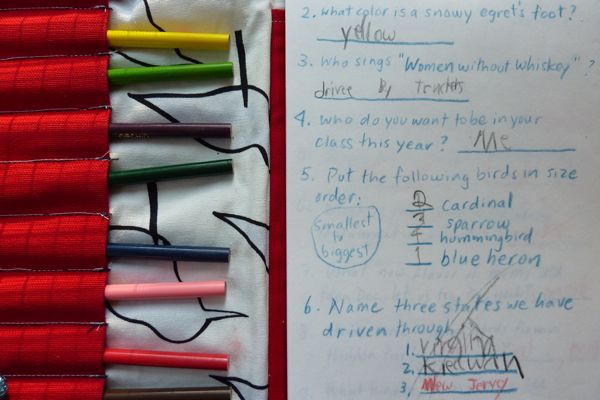 2. What color is a snowy egret's foot?
yellow
3. Who sings "Women without Whiskey"?
drivee By Truckers
4. Who do you want to be in your
class this year? Me
5. Put the following birds in size
order:
Smallest
to
biggest
2 cardinal
3 sparrow
4 hummingbird
1 blue heron
6. Name three states we have
driven through
1. Virginia
2.
3. New Jervy